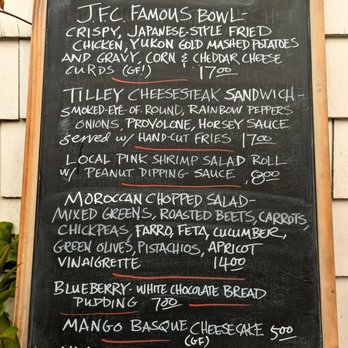 J.F.C. FAMOUS BOWL-
CRISPY, JAPANESE-STYLE FRIED
CHICKEN, YUKON GOLD MASHED POTATOES
AND GRAVY, CORN & CHEDDAR CHEESE
CURDS (GF!) 17.00
TILLEY CHEESESTEAK SANDWICH-
SMOKED-EYE-OF ROUND, RAINBOW PEPPERS
ONIONS, PROVOLONE, HORSEY SAUCE
served w/ HAND-CUT FRIES 17.00
LOCAL PINK SHRIMP SALAD ROLL
w/ PEANUT DIPPING SAUCE 8.00
MOROCCAN CHOPPED SALAD-
MIXED GREENS, ROASTED BEETS, CARROTS,
CHICKPEAS, FARRO, FETA, CUCUMBER,
GREEN OLIVES, PISTACHIOS, APRICOT
VINAIGRETTE 14.00
BLUEBERRY-WHITE CHOCOLATE BREAD
PUDDING 7.00
MANGO BASQUE CHEESECAKE 5.00
(GF)